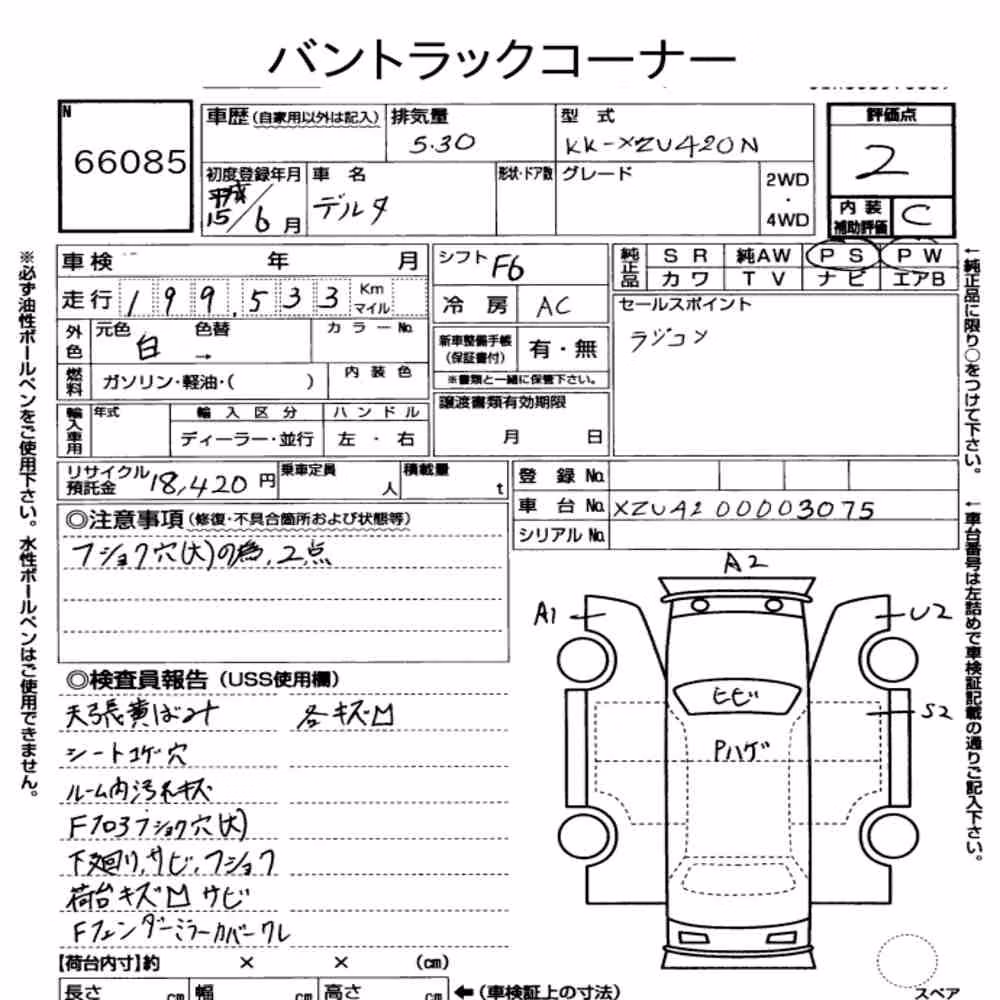 バントラックコーナー
N
66085
車歴 (自家用以外は記入)
排気量
5.30
型 式
KK-XZU420N
初度登録年月
平成
15/6月
車 名
デルタ
形状・ドア数
グレード
2WD
・
4WD
評価点
2
内 装
補助評価
C
車 検 年 月
走行 199,533 Km
マイル
外色
元色
白
色替
→
カラーNo.
燃料
ガソリン・軽油・( )
内 装 色
輸入車用
年式
輸 入 区 分
ディーラー・並行
ハ ン ド ル
左 ・ 右
シフト F6
冷 房 AC
新車整備手帳
(保証書付)
有・無
※書類と一緒に保管下さい。
譲渡書類有効期限
月 日
純正品
S R
純AW
P S
P W
カ ワ
T V
ナ ビ
エアB
セールスポイント
ラジコン
リサイクル
預託金
18,420 円
乗車定員
人
積載量
t
登 録 No.
車 台 No. XZU42 00003075
シリアル No.
◎注意事項 (修復・不具合箇所および状態等)
フショク穴(大)の為、2点
◎検査員報告 (USS使用欄)
天張黄ばみ 各キズ凹
シートコゲ穴
ルーム内汚れキズ
Fフロアフショク穴(大)
下廻り、サビ、フショク
荷台キズ凹サビ
Fフェンダーミラーカバーワレ
【荷台内寸】約 × × (cm)
長さ cm
幅 cm
高さ cm
←(車検証上の寸法)
A2
A1
U2
ヒビ
S2
Pハゲ
スペア
※必ず油性ボールペンをご使用下さい。水性ボールペンはご使用できません。
←純正品に限り○をつけて下さい。
←車台番号は左詰めで車検証記載の通りご記入下さい。